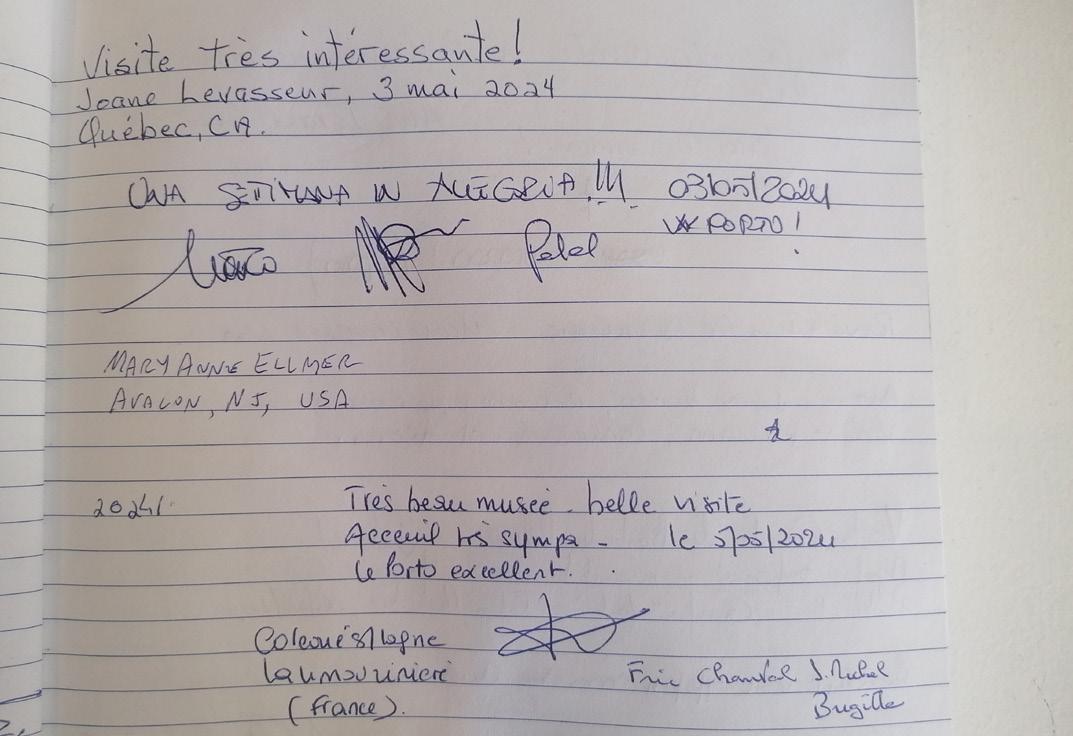 Visite très intéressante!
Joane Levasseur, 3 mai 2024
Québec, CA.
UNA SETTIMANA IN ALLEGRIA!!! 03/05/2024
W PORTO!
MARY ANNE ELLMER
AVALON, NJ, USA
2024
Très beau musée - belle visite
Acceuil très sympa - le 5/05/2024
le Porto excellent.
(France).
Eric Chantal J. Michel
Brigitte